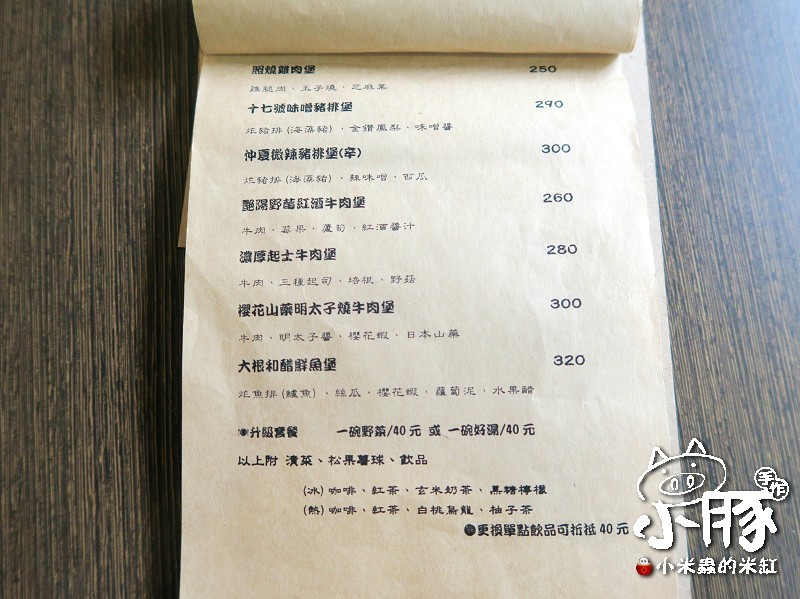 照燒雞肉堡 250
雞腿肉、玉子燒、芝麻葉
十七號味噌豬排堡 290
炸豬排(海藻豬)、金鑽鳳梨、味噌醬
仲夏微辣豬排堡(辛) 300
炸豬排(海藻豬)、辣味噌、西瓜
艷陽野莓紅酒牛肉堡 260
牛肉、莓果、蘆筍、紅酒醬汁
濃厚起士牛肉堡 280
牛肉、三種起司、培根、野菇
櫻花山藥明太子燒牛肉堡 300
牛肉、明太子醬、櫻花蝦、日本山藥
大根和醋鮮魚堡 320
炸魚排(鱸魚)、絲瓜、櫻花蝦、蘿蔔泥、水果醋
升級套餐 一碗野菜/40元 或 一碗好湯/40元
以上附 漬菜、松果薯球、飲品
(冰)咖啡、紅茶、玄米奶茶、黑糖檸檬
(熱)咖啡、紅茶、白桃烏龍、柚子茶
更換單點飲品可折抵40元
小豚
手作
小米蟲的米缸